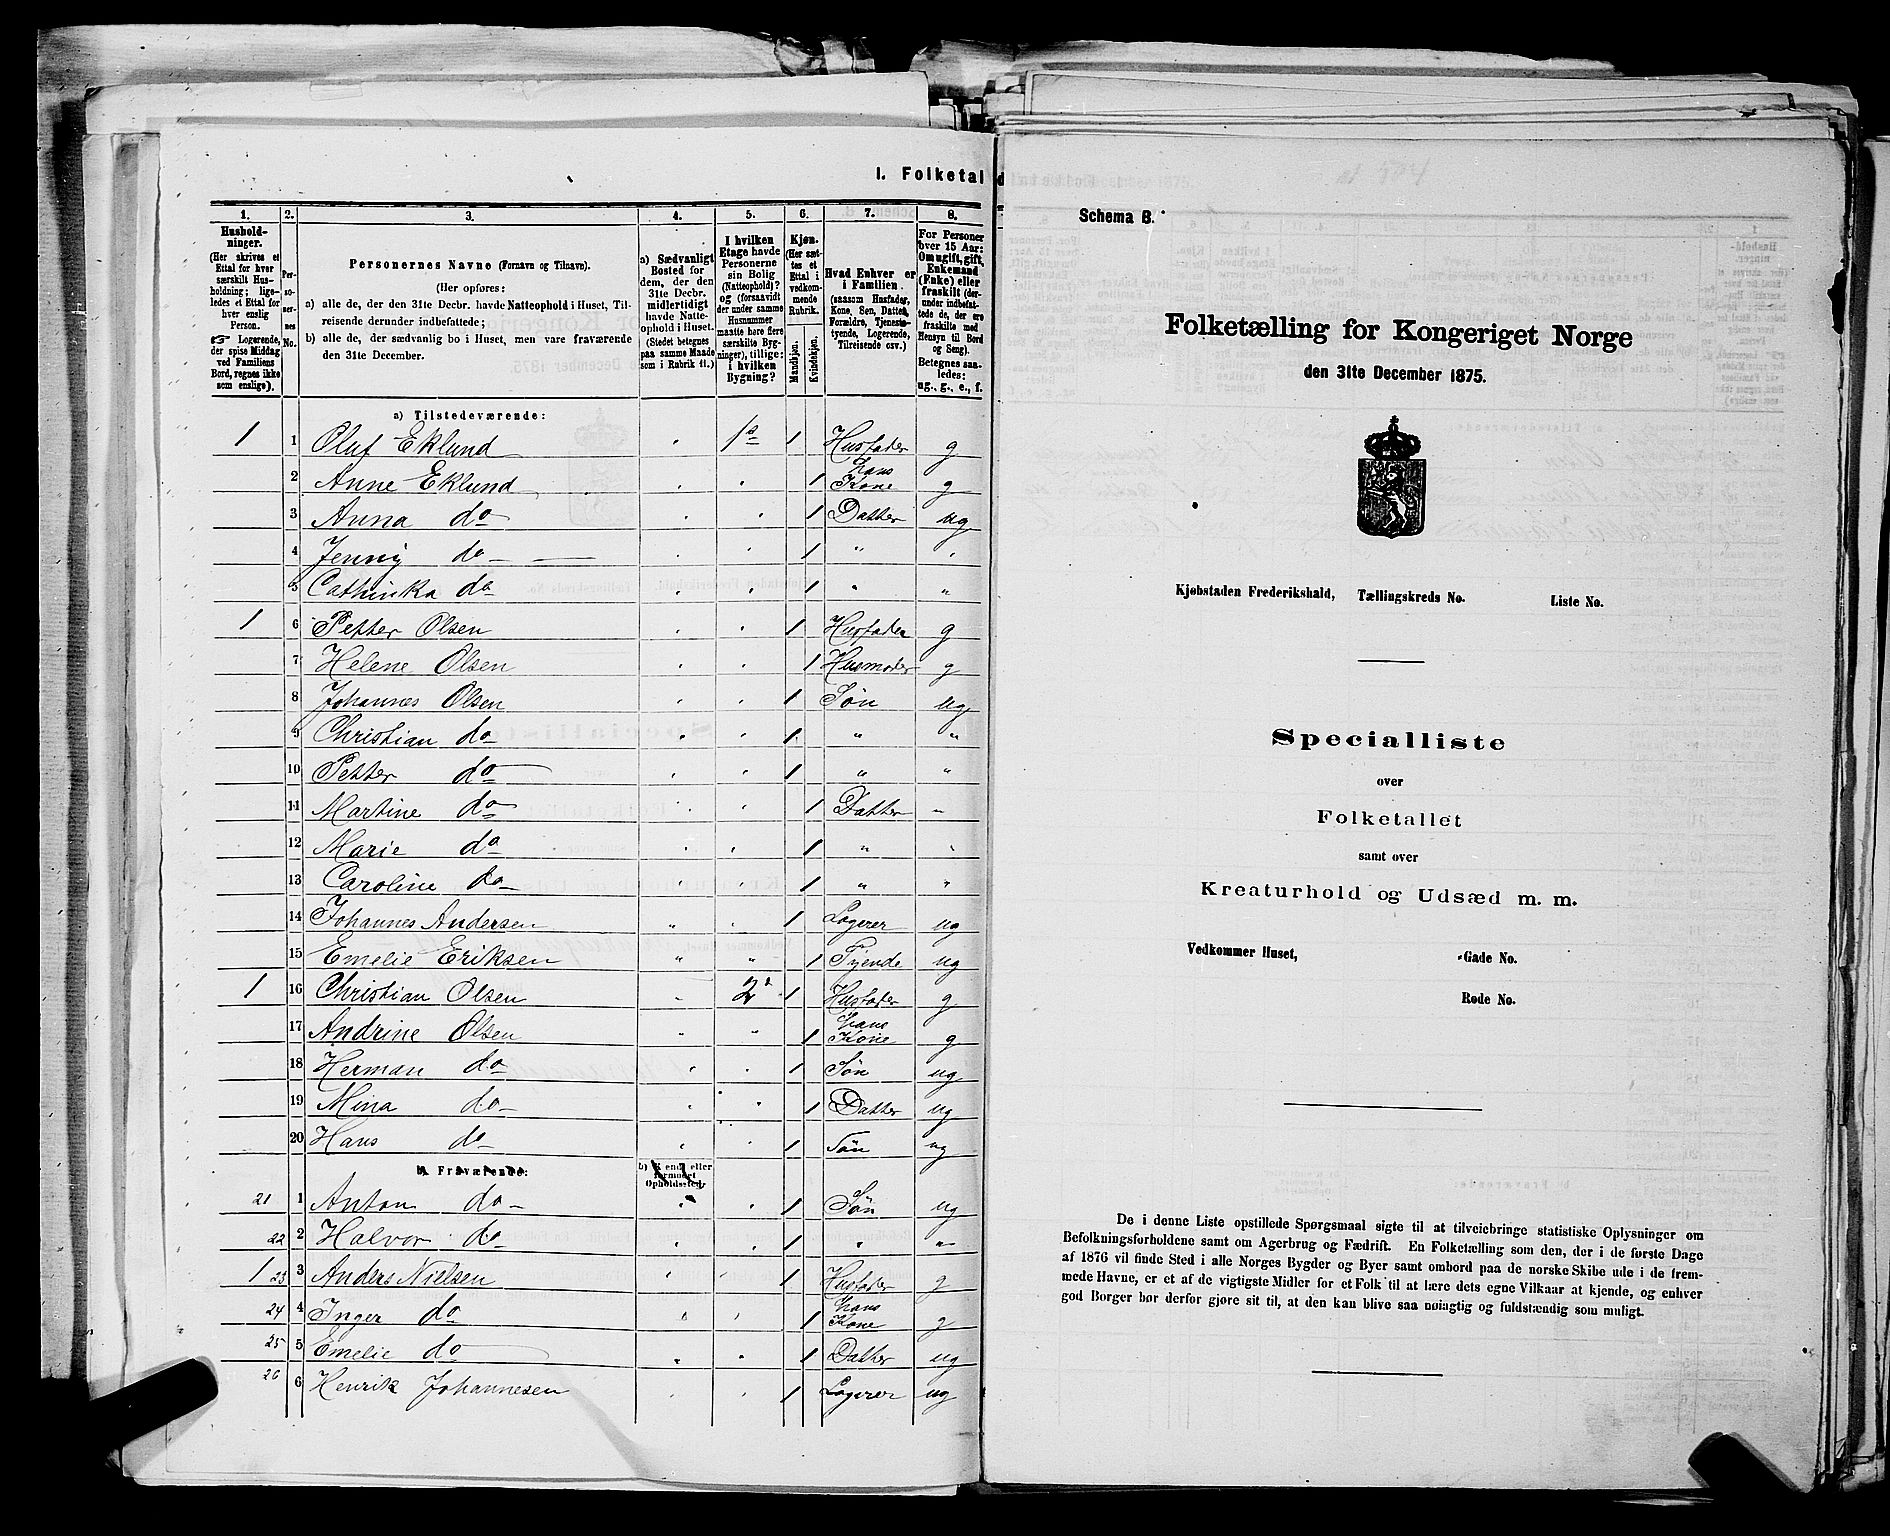 I. Folketal
1. 2. 3. 4. 5. 6. 7. 8.
Husholdninger.
(Her skrives et
Ettal for hver
særskilt Husholdning;
ligeledes et Ettal for
hver enslig
Person.
☞ Logerende,
der spise Middag
ved Familiens
Bord, regnes ikke
som enslige).
Personernes No.
Personernes Navne (Fornavn og Tilnavn).
(Her opføres:
a) alle de, der den 31te Decbr. havde Natteophold i Huset, Tilreisende
derunder indbefattede;
b) alle de, der sædvanlig bo i Huset, men vare fraværende
den 31te December.
a) Sædvanligt
Bosted for
dem, der den
31te Decbr.
midlertidigt
havde Natteophold
i Huset.
(Stedet betegnes
paa samme Maade
som i Rubrik 11.)
I hvilken
Etage havde
Personerne
sin Bolig
(Natteophold)?
og (forsaavidt
der under samme
Husnummer
maatte høre flere
særskilte Bygninger),
tillige:
i hvilken
Bygning?
Kjøn.
(Her sættes
et
Ettal i
vedkommende
Rubrik.
Mandkjøn.
Kvindekjøn.
Hvad Enhver er
i Familien.
(saasom Husfader,
Kone, Søn, Datter,
Forældre, Tjenestetyende,
Logerende,
Tilreisende osv.)
For Personer
over 15 Aar:
Om ugift, gift,
Enkemand
(Enke) eller
fraskilt (derunder
indbefattede
de, der ere
fraskilte med
Hensyn til Bord
og Seng).
Betegnes saaledes:
ug., g., e., f.
a) Tilstedeværende:
1 1 Oluf Eklund 1 1 Husfader g
2 Anne Eklund 1 Hans Kone g
3 Anna do 1 Datter ug
4 Jenny do 1 "
5 Cathinka do 1 " "
1 6 Petter Olsen 1 Husfader g
7 Helene Olsen 1 Husmoder g
8 Johannes Olsen 1 Søn ug
9 Christian do 1 " "
10 Petter do 1 " "
11 Martine do 1 Datter "
12 Marie do 1 " "
13 Caroline do 1 " "
14 Johannes Andersen 1 Logerer ug
15 Emelie Eriksen " " 1 Tyende ug
1 16 Christian Olsen " 2 1 Husfader g
17 Andrine Olsen " " 1 Hans Kone g
18 Herman do " 1 Søn ug
19 Mina do " " 1 Datter ug
20 Hans do 1 Søn ug
b) Fraværende:
b) Kjendt eller
formodet
Opholdssted.
21 1 Anton do 1 Søn ug
22 2 Halvor do 1 " "
1 23 3 Anders Nielsen 1 Husfader g
24 4 Inger do 1 Hans Kone g
25 5 Emelie do 1 Datter ug
26 6 Henrik Johannesen 1 Logerer ug
Schema B.
Folketælling for Kongeriget Norge
den 31te December 1875.
Kjøbstaden Frederikshald, Tællingskreds No. Liste No.
Specialliste
over
Folketallet
samt over
Kreaturhold og Udsæd m. m.
Vedkommer Huset, -Gade No.
Rode No.
De i denne Liste opstillede Spørgsmaal sigte til at tilveiebringe statistiske Oplysninger om
Befolkningsforholdene samt om Agerbrug og Fædrift. En Folketælling som den, der i de første Dage
af 1876 vil finde Sted i alle Norges Bygder og Byer samt ombord paa de norske Skibe ude i de fremmede
Havne, er et af de vigtigste Midler for et Folk til at lære dets egne Vilkaar at kjende, og enhver
god Borger bør derfor gjøre sit til, at den kan blive saa nøiagtig og fuldstændig som muligt.